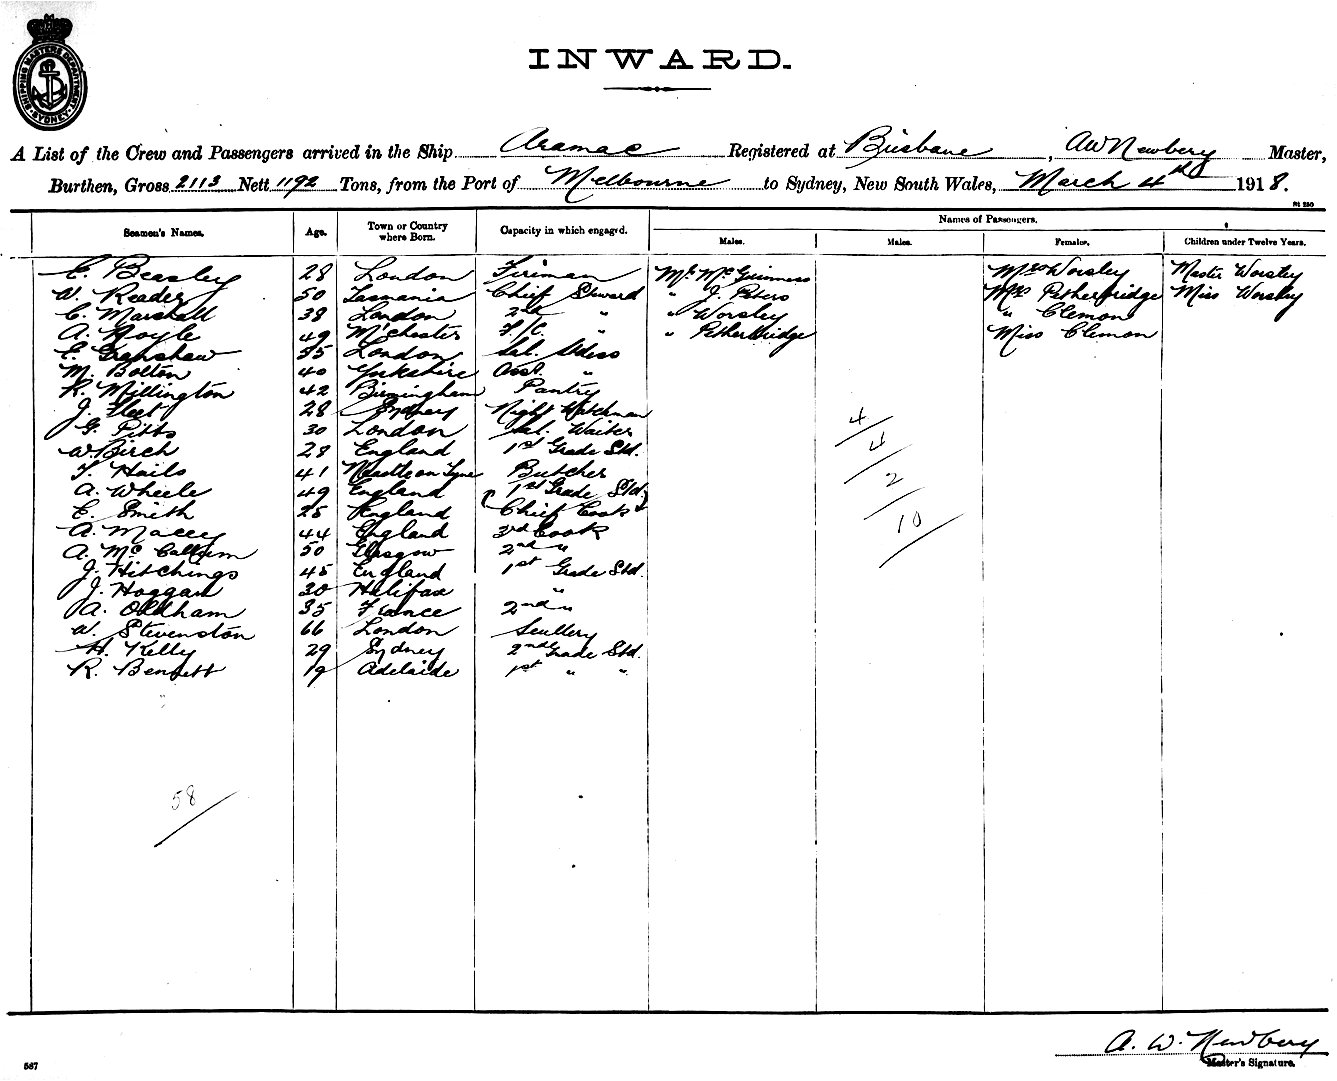 SHIPPING MASTERS DEPARTMENT
SYDNEY
INWARD.
A List of the Crew and Passengers arrived in the Ship Aramac Registered at Brisbane, AW Newbery Master,
Burthen, Gross 2113 Nett 1192 Tons, from the Port of Melbourne to Sydney, New South Wales, March 4th 1918.
Names of Passengers.
Seamen's Names. Age. Town or Country where Born. Capacity in which engaged. Males. Males. Females. Children under Twelve Years.
C. Beasley 28 London Fireman Mr. McGuinness Mrs Worsley Master Worsley
W. Reader 50 Tasmania Chief Steward " J. Peters Mrs Petherbridge Miss Worsley
C. Marshall 38 London 2nd " " Worsley " Clemons
A. Hoyle 49 M'chester F/C. " " Petherbridge Miss Clemon
E. Granshaw 35 London Sal. Stdess
M. Bolton 40 Yorkshire Asst. "
R. Millington 42 Birmingham Pantry
J. Fleet 28 Sydney Night Watchman
G. Pitts 30 London Sal. Waiter
W. Birch 28 England 1st Grade Std.
T. Hails 41 N'castle on Tyne Butcher
A. Wheele 49 England 1st Grade Std.
E. Smith 25 England Chief Cook
A. Macey 44 England 3rd Cook
A. McCallum 50 Glasgow 2nd "
J. Hitchings 45 England 1st Grade Std.
J. Hoggan 30 Halifax "
A. Oldham 35 France 2nd "
W. Stevenston 66 London Scullery
H. Kelly 29 Sydney 2nd Grade Std.
R. Bennett 19 Adelaide 1st " "
4
4
2
10
58
A. W. Newbery
Master's Signature.
567